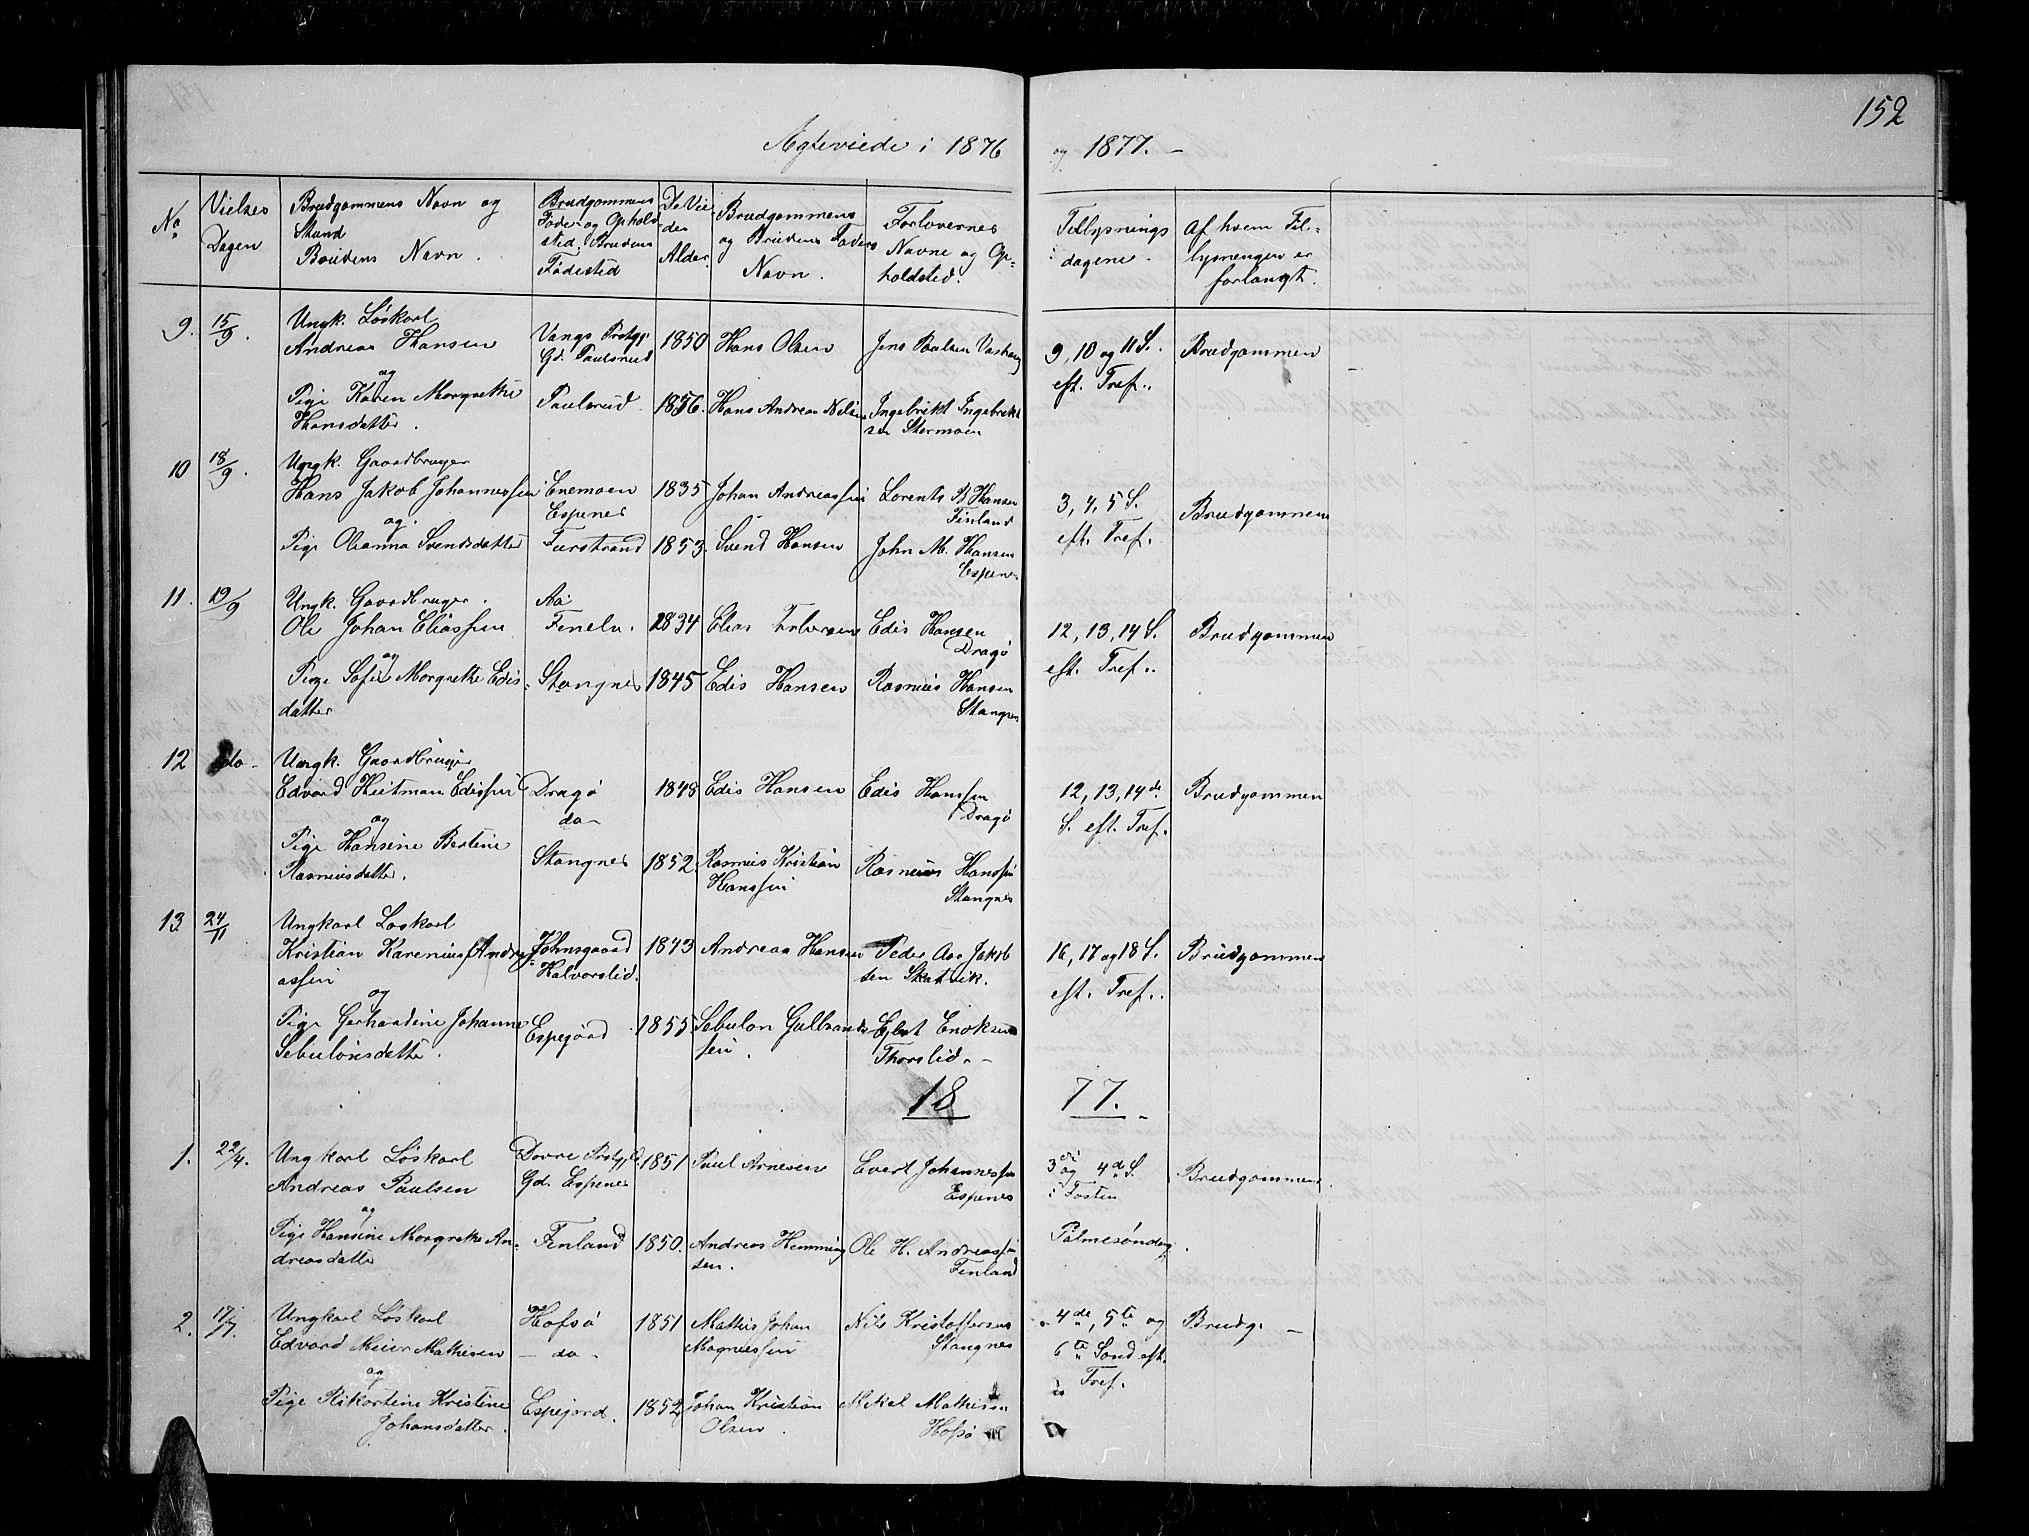 152
Ægteviede i 1876 og 1877. –
No
Vielses
Dagen
Brudgommens Navn og
Stand
Brudens Navn.
Brudgommens
Føde- og Ophold-
sted. Brudens
Fødested
De Vie-
des
Alder.
Brudgommens
og Brudens Faders
Navn.
Forlovernes
Navne og Op-
holdsted.
Tillysnings
dagene.
Af hvem Til-
lysningen er
forlangt.
9. 15/9. Ungk. Løskarl
Andreas Hansen
Vangs Prstgj.
Gd. Paulsrud
1850 Hans Olsen
Jens Paulsen
9, 10 og 11 S.
eft. Tref..
Brudgommen
og
Pige Karen Margrethe
Hansdatter.
Paulsrud. 1856. Hans Andreas Nilsen
Ingebrikt Ingebrikt
sen Stormoen
10 18/9. Ungk. Gaardbruger
Hans Jakob Johannessen
Enemoen
Espenes
1835 Johan Andreassen
Lorents B Hansen
Finland
3, 4, 5 S.
eft. Tref.
Brudgommen
og
Pige Oleanna Svendsdatter
Furstrand 1853. Svend Hansen
John M. Hansen
Espenes
11. 19/9 Ungk. Gaardbruger.
Ole Johan Eliassen
Aa
1834 Elias
Edis Hansen
Dragø
12, 13, 14 S.
eft. Tref..
Brudgommen
og
Pige Sofie Margrethe Edis-
datter
Stangnes 1845 Edis Hansen
Rasmus Hansen
Stangnes
12 do- Ungk. Gaardbruger
Edvard Heitman Edissen
Dragø
do-
1848 Edis Hansen
Edis Hanssen
Dragø
12, 13, 14de
S. eft. Tref.
Brudgommen
og
Pige Hansine Bertine
Rasmusdatter.
Stangnes 1852. Rasmus Kristian
Hanssen
Rasmus Hanssen
Stangnes
13 24/11 Ungkarl Løskarl
Kristian Karenius Andre
assen
Johnsgaard
Halvorslid.
1843 Andreas Hansen
Peder Aas Jakob
sen Skatvik.
16, 17 og 18 S.
eft. Tref..
Brudgommen
og
Pige Gerhardine Johanne
Sebulonsdatter.
Espejord. 1855 Sebulon Gulbrands
sen.
Egbert Enoksen
Thorslid. –
18 77.
1. 22/4. Ungkarl Løskarl
Andreas Paulsen
Dovre Prstgjld.
Gd. Espenes
1851 Paul Arnesen
Evert Johannessen
Espenes
3die og 4de S.
i Fasten
Brudgommen.
og
Pige Hansine Margrethe An-
dreasdatter
Finland 1850. Andreas Hemming
sen.
Ole H. Andreassen
Finland
Palmesøndag.
2. 17/7. Ungkarl Løskarl
Edvard Meier Mathisen
Hofsø
– do –
1851 Mathis Johan
Magnussen
Nils Kristoffersen
Stangnes
4de, 5te og
6te Sønd eft.
Tref.
Brudg. –
og
Pige Rikartine Kristine
Johansdatter.
Espejord. 1852 Johan Kristian
Olsen.
Mikal Mathisen
Hofsø